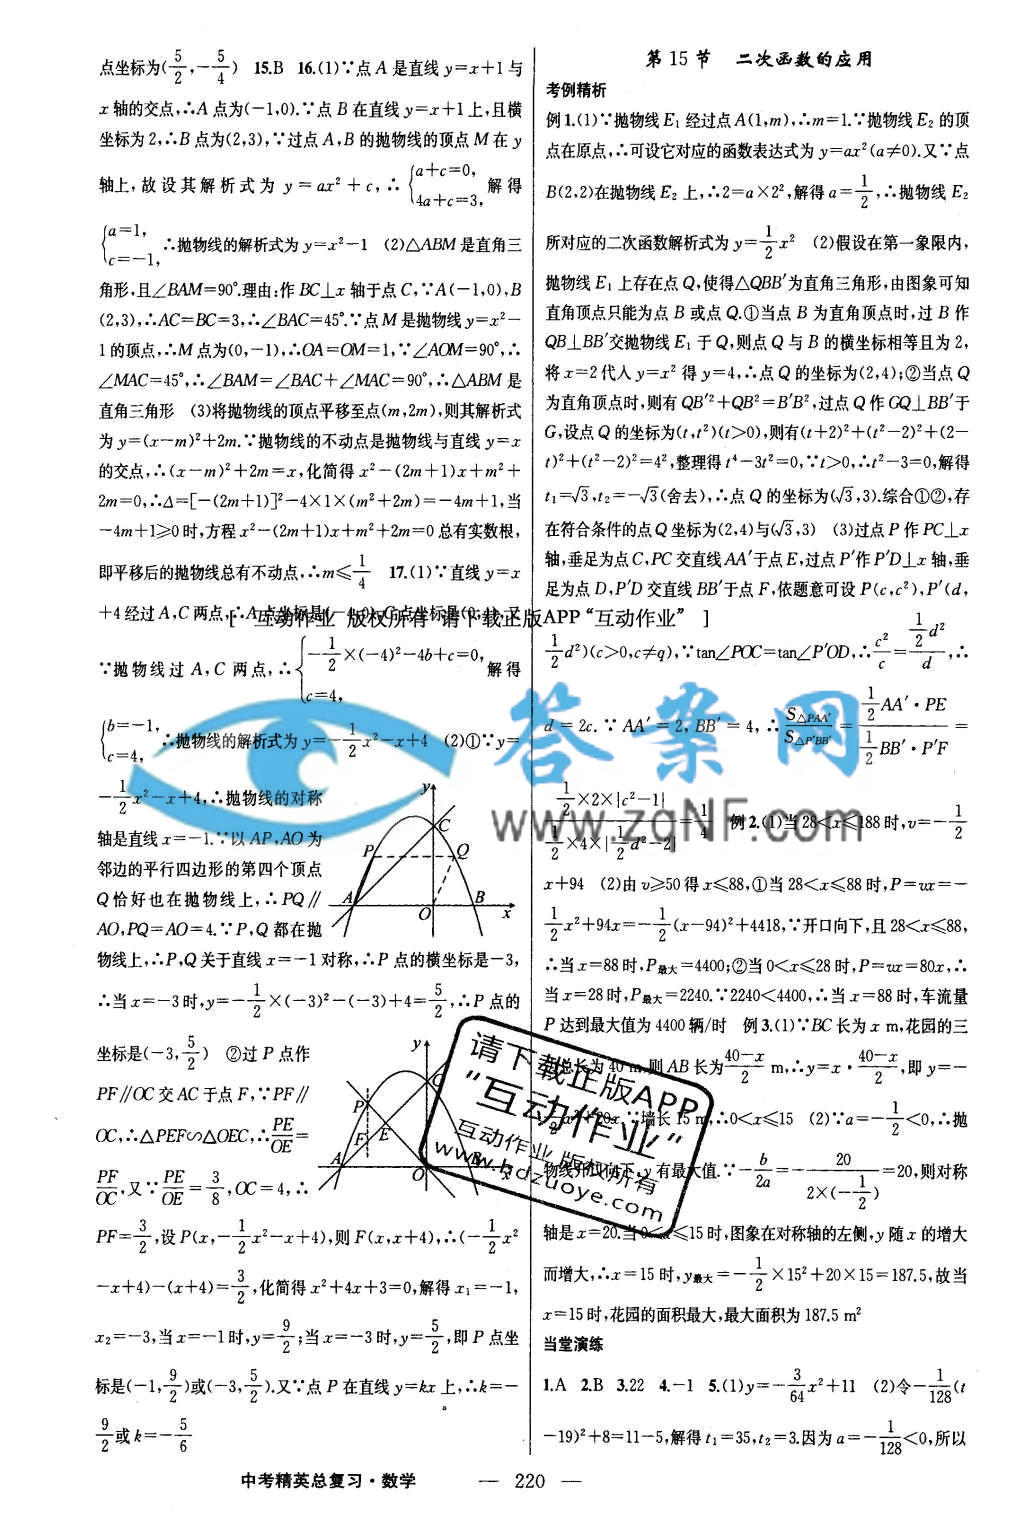 点坐标为(5/2,-5/4) 15.B 16.(1)∵点 A 是直线 y=x+1 与
x 轴的交点,∴A 点为(-1,0).∵点 B 在直线 y=x+1 上,且横
坐标为 2,∴B 点为(2,3),∵过点 A,B 的抛物线的顶点 M 在 y
轴上,故设其解析式为 y=ax²+c,∴{a+c=0, 4a+c=3, 解得
{a=1, c=-1, ∴抛物线的解析式为 y=x²-1 (2)△ABM 是直角三
角形,且∠BAM=90°.理由:作 BC⊥x 轴于点 C,∵A(-1,0),B
(2,3),∴AC=BC=3,∴∠BAC=45°.∵点 M 是抛物线 y=x²-
1 的顶点,∴M 点为(0,-1),∴OA=OM=1,∵∠AOM=90°,∴
∠MAC=45°,∴∠BAM=∠BAC+∠MAC=90°,∴△ABM 是
直角三角形 (3)将抛物线的顶点平移至点(m,2m),则其解析式
为 y=(x-m)²+2m.∵抛物线的不动点是抛物线与直线 y=x
的交点,∴(x-m)²+2m=x,化简得 x²-(2m+1)x+m²+
2m=0,∴Δ=[-(2m+1)]²-4×1×(m²+2m)=-4m+1,当
-4m+1≥0 时,方程 x²-(2m+1)x+m²+2m=0 总有实数根,
即平移后的抛物线总有不动点,∴m≤1/4 17.(1)∵直线 y=x
+4 经过 A,C 两点,∴A 点坐标是(-4,0),C 点坐标是(0,4),又
[ 互动作业 版权所有 请下载正版APP“互动作业” ]
∵抛物线过 A,C 两点,∴{-1/2×(-4)²-4b+c=0, c=4, 解得
{b=-1, c=4, ∴抛物线的解析式为 y=-1/2x²-x+4 (2)①∵y=
-1/2x²-x+4,∴抛物线的对称
轴是直线 x=-1.∵以 AP,AO 为
邻边的平行四边形的第四个顶点
Q 恰好也在抛物线上,∴PQ∥
AO,PQ=AO=4.∵P,Q 都在抛
物线上,∴P,Q 关于直线 x=-1 对称,∴P 点的横坐标是-3,
∴当 x=-3 时,y=-1/2×(-3)²-(-3)+4=5/2,∴P 点的
坐标是(-3,5/2) ②过 P 点作
PF∥OC 交 AC 于点 F,∵PF∥
OC,∴△PEF∽△OEC,∴PE/OE=
PF/OC,又∵PE/OE=3/8,OC=4,∴
PF=3/2,设 P(x,-1/2x²-x+4),则 F(x,x+4),∴(-1/2x²
-x+4)-(x+4)=3/2,化简得 x²+4x+3=0,解得 x₁=-1,
x₂=-3,当 x=-1 时,y=9/2;当 x=-3 时,y=5/2,即 P 点坐
标是(-1,9/2)或(-3,5/2).又∵点 P 在直线 y=kx 上,∴k=-
9/2或 k=-5/6
y
C
P
Q
A
O
B
x
y
C
P
F
E
A
O
B
x
第 15 节 二次函数的应用
考例精析
例 1.(1)∵抛物线 E₁ 经过点 A(1,m),∴m=1.∵抛物线 E₂ 的顶
点在原点,∴可设它对应的函数表达式为 y=ax²(a≠0).又∵点
B(2,2)在抛物线 E₂ 上,∴2=a×2²,解得 a=1/2,∴抛物线 E₂
所对应的二次函数解析式为 y=1/2x² (2)假设在第一象限内,
抛物线 E₁ 上存在点 Q,使得△QBB′为直角三角形,由图象可知
直角顶点只能为点 B 或点 Q.①当点 B 为直角顶点时,过 B 作
QB⊥BB′交抛物线 E₁ 于 Q,则点 Q 与 B 的横坐标相等且为 2,
将 x=2代入 y=x² 得 y=4,∴点 Q 的坐标为(2,4);②当点 Q
为直角顶点时,则有 QB′²+QB²=B′B²,过点 Q 作 GQ⊥BB′于
G,设点 Q 的坐标为(t,t²)(t>0),则有(t+2)²+(t²-2)²+(2-
t)²+(t²-2)²=4²,整理得 t⁴-3t²=0,∵t>0,∴t²-3=0,解得
t₁=√3,t₂=-√3(舍去),∴点 Q 的坐标为(√3,3).综合①②,存
在符合条件的点 Q 坐标为(2,4)与(√3,3) (3)过点 P 作 PC⊥x
轴,垂足为点 C,PC 交直线 AA′于点 E,过点 P′作 P′D⊥x 轴,垂
足为点 D,P′D 交直线 BB′于点 F,依题意可设 P(c,c²),P′(d,
1/2d²)(c>0,c≠q),∵tan∠POC=tan∠P′OD,∴c²/c=(1/2d²)/d,∴
d=2c.∵AA′=2,BB′=4,∴S△PAA′/S△P′BB′=(1/2AA′·PE)/(1/2BB′·P′F)=
(1/2×2×|c²-1|)/(1/2×4×|1/2d²-2|)=1/4 例 2.(1)当 28<x≤188时,v=-1/2
x+94 (2)由 v≥50得 x≤88,①当 28<x≤88 时,P=vx=-
1/2x²+94x=-1/2(x-94)²+4418,∵开口向下,且 28<x≤88,
∴当 x=88 时,P最大=4400;②当 0<x≤28 时,P=vx=80x,∴
当 x=28 时,P最大=2240.∵2240<4400,∴当 x=88 时,车流量
P 达到最大值为 4400 辆/时 例 3.(1)∵BC 长为 x m,花园的三
总长为 40 m,则 AB 长为(40-x)/2 m,∴y=x·(40-x)/2,即 y=-
x²+20x ∵墙长 15 m,∴0<x≤15 (2)∵a=-1/2<0,∴抛
物线开口向下,y 有最大值.∵-b/2a=-20/(2×(-1/2))=20,则对称
轴是 x=20.当 0<x≤15 时,图象在对称轴的左侧,y 随 x 的增大
而增大,∴x=15 时,y最大=-1/2×15²+20×15=187.5,故当
x=15 时,花园的面积最大,最大面积为 187.5 m²
当堂演练
1.A 2.B 3.22 4.-1 5.(1)y=-3/64x²+11 (2)令-1/128(t
-19)²+8=11-5,解得 t₁=35,t₂=3.因为 a=-1/128<0,所以
答案网
www.zqNF.com
请下载正版APP
“互动作业”
互动作业 版权所有
www.hdzuoye.com
中考精英总复习·数学 — 220 —